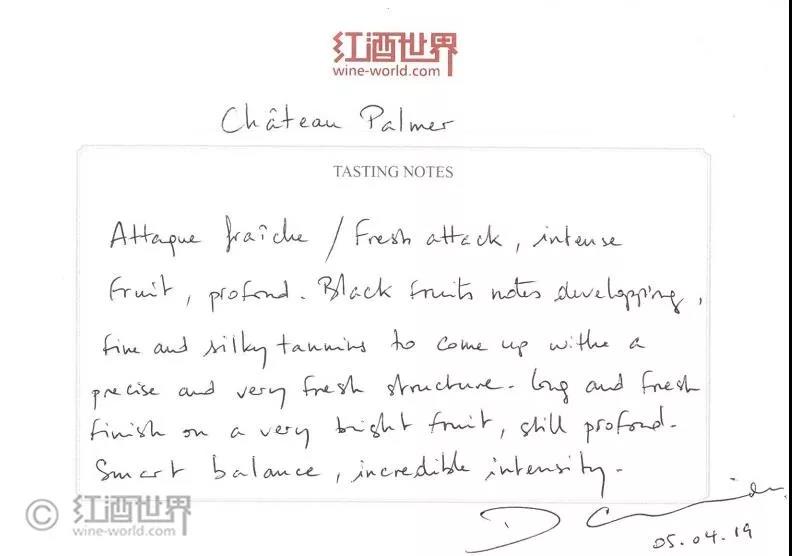 红酒世界
wine-world.com
Château Palmer
TASTING NOTES
Attaque fraîche / Fresh attack, intense
fruit, profond. Black fruits notes developping,
fine and silky tannins to come up withe a
precise and very fresh structure. Long and fresh
finish on a very bright fruit, still profond.
Smart balance, incredible intensity.
D
05.04.19
© 红酒世界
wine-world.com